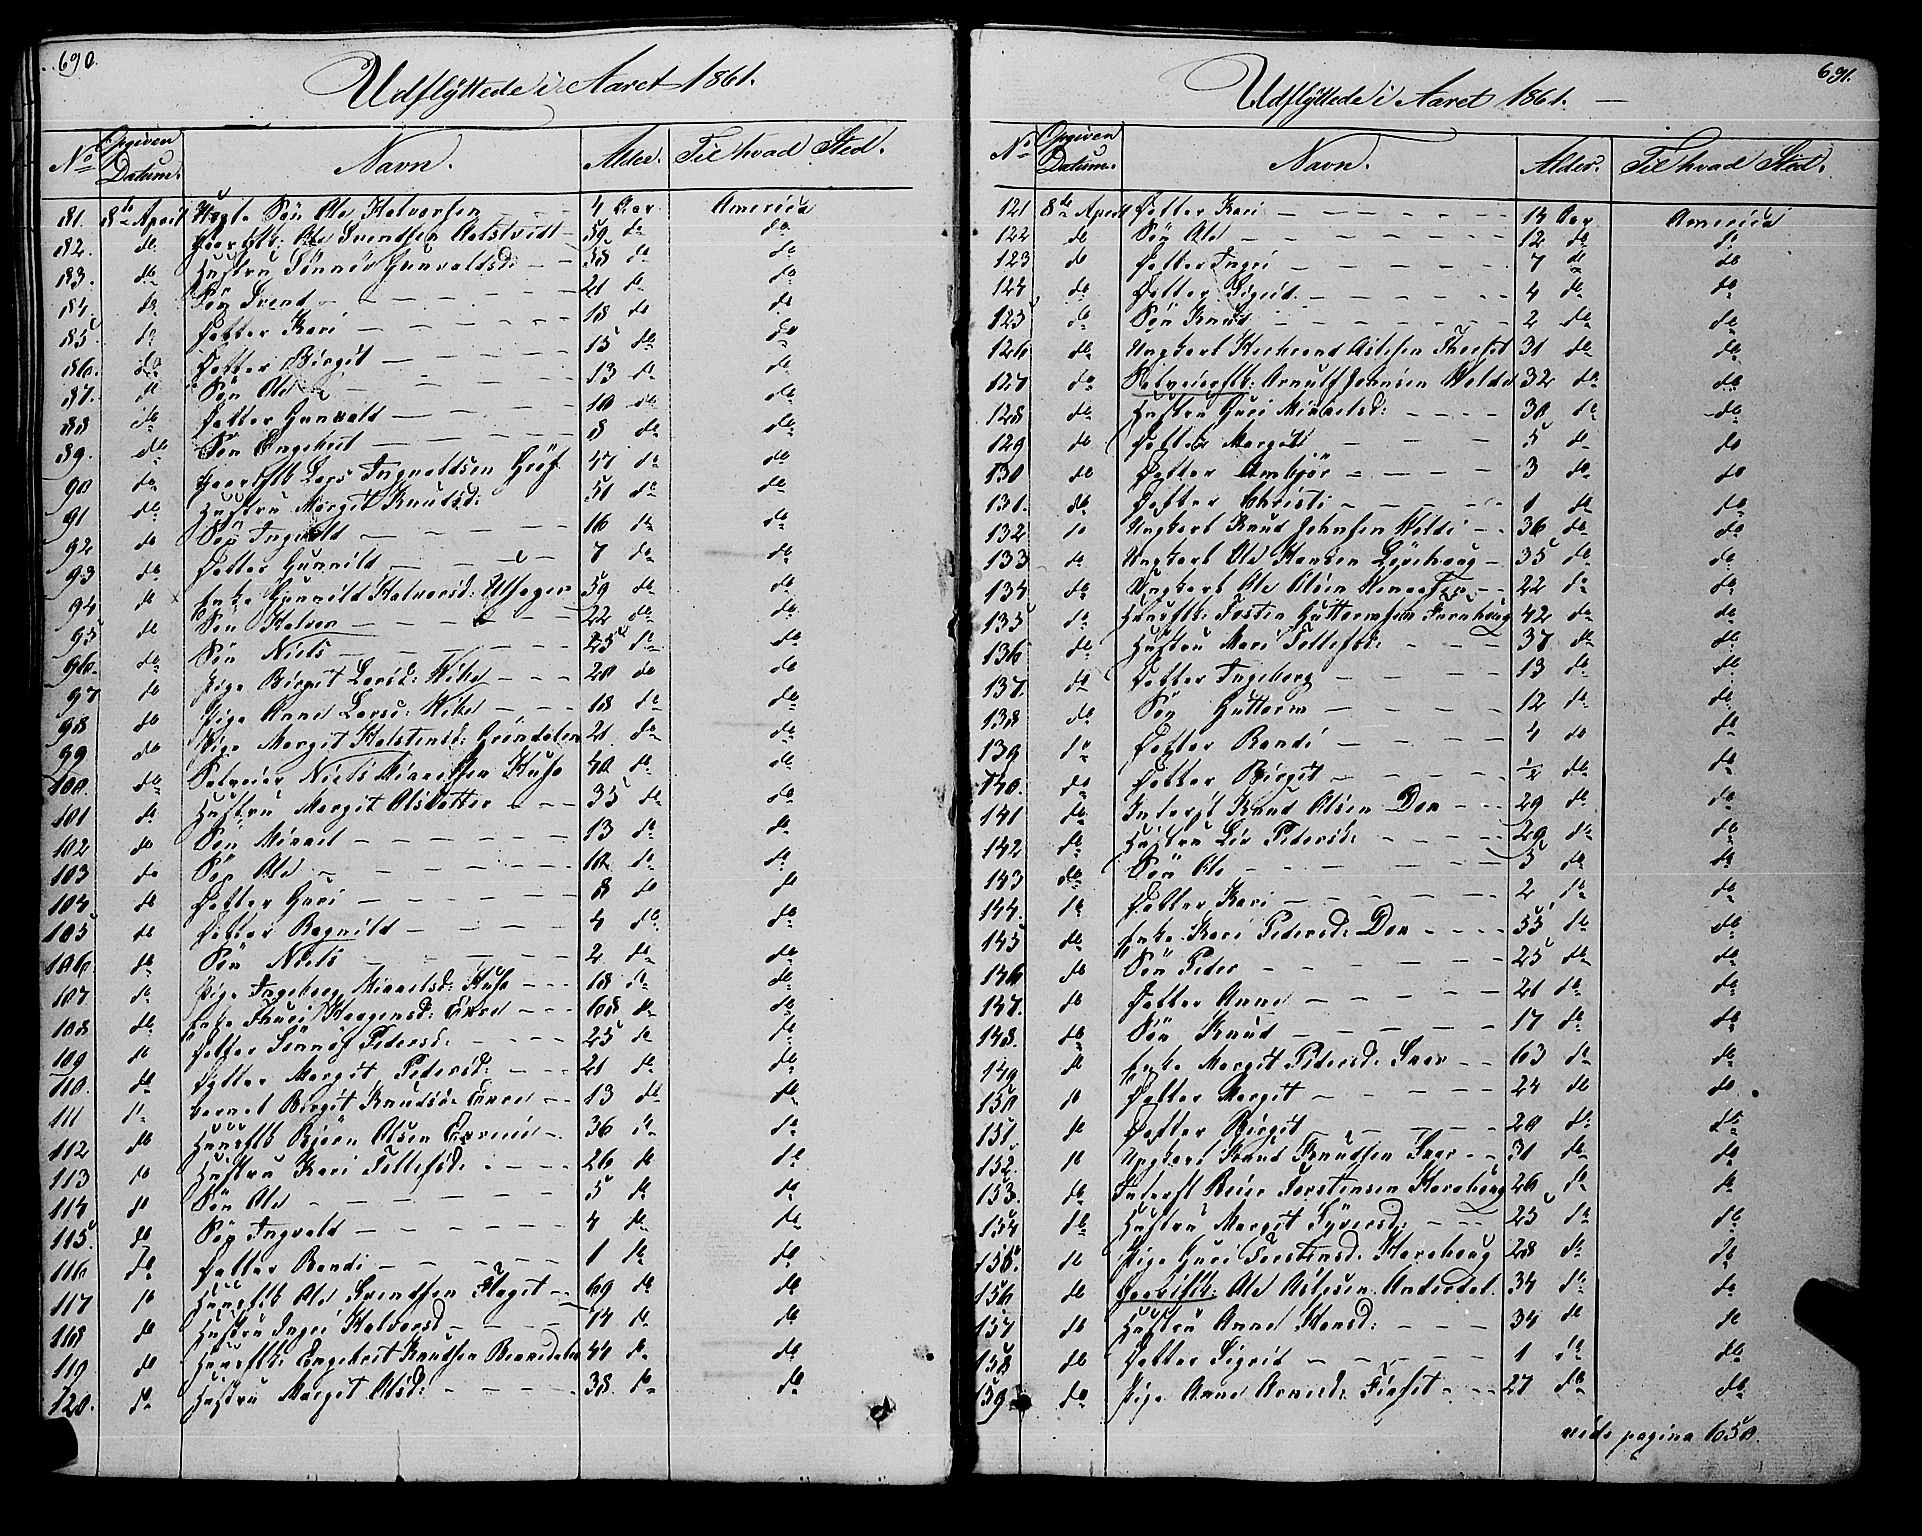 690.
Udflyttede i Aaret 1861.
No Opgiven Datum. Navn. Alder. Til hvad Sted.
81. 8de April Søn Ole Halvorsen 4 Aar America
82. do Ole Svendsen 59 do do
83. do Hustru Sønnev Gunvaldsd: 58 do do
84. do Søn Svend 21 do do
85 do Datter Kari 18 do do
86. do Datter Birgit 15 do do
87. do Søn Ole 13 do do
88 do Datter Gunvald 10 do do
89. do Søn Engebret 8 do do
90 do Lars Ingvaldsen 47 do do
91 do Hustru Margit Knudsd: 51 do do
92 do Søn Ingvald 16 do do
93 do Datter Gunnild 7 do do
94 do Enke Gunnild Halvorsd: 59 do do
95 do Søn Halvor 22 do do
96. do Søn Niels 25 do do
97 do Pige Birgit Larsd: Wike 20 do do
98 do Pige Anne Larsd: Wike 18 do do
99 do Pige Margit Halstensd: Grøndalen 21 do do
100. do Selveier Niels Mikkelsen Huso 40 do do
101 do Hustru Margit Olsdatter 35 do do
102 do Søn Mikkel 13 do do
103 do Søn Ole 10 do do
104 do Datter Guri 8 do do
105 do Datter Ragnild 4 do do
106 do Søn Niels 2 do do
107 do Pige Ingeborg Mikkelsd: Huso 18 do do
108 do Enke Thuri Haagensd: 68 do do
109 do Datter Sønnev Pedersd: 25 do do
110. do Datter Margit Pedersd: 21 do do
111 do Barnet Birgit Knudsd: 13 do do
112 do Huusflk Bjørn Olsen 36 do do
113 do Hustru Kari Tollefsd: 26 do do
114 do Søn Ole 5 do do
115. do Søn Ingvald 4 do do
116 do Datter Randi 1 do do
117 do Huusflk Ole Svendsen Flaget 69 do do
118 do Hustru Ingri Halvorsd 74 do do
119 do Huusflk: Engebret Knudsen 44 do do
120. do Hustru Margit Olsd: 38 do do
691.
Udflyttede i Aaret 1861.
No Opgiven Datum. Navn. Alder. Til hvad Sted.
121 8de April Datter Kari 14 Aar America
122 do Søn Ole 12 do do
123 do Datter Ingri 7 do do
124 do Datter Sigrid 4 do do
125 do Søn Knud 2 do do
126 do Ungkarl Herbrand Aslesen 31 do do
127 do Selveierflk: Arnulf Johnsen Wolde 32 do do
128 do Hustru Guri Mikkelsd: 30 do do
129 do Datter Margit 5 do do
130 do Datter Ambjør 3 do do
131. do Datter Christi 1 do do
132 do Ungkarl Knud Johnsen Wolde 36 do do
133 do Ungkarl Ole Hansen 35 do do
134 do Ungkarl Ole Olsen 22 do do
135 do Huusflk: Torsten Guttormsen 42 do do
136 do Hustru Mari Tollefsd: 37 do do
137. do Datter Ingeborg 13 do do
138 do Søn Guttorm 12 do do
139 do Datter Randi 4 do do
140. do Datter Birgit ½ do do
141 do Inderst Knud Olsen Døn 29 do do
142 do Hustru Liv Pedersd: 29 do do
143 do Søn Ole 5 do do
144. do Datter Kari 2 do do
145 do Enke Kari Pedersd: Døn 55 do do
146 do Søn Peder 25 do do
147. do Datter Anne 21 do do
148. do Søn Knud 17 do do
149 do Enke Margit Pedersd: 63 do do
150 do Datter Margit 24 do do
151 do Datter Birgit 20 do do
152. do Ungkarl Knud Knudsen 31 do do
153. do Inderst Torstensen 26 do do
154 do Hustru Margit Syversd: 25 do do
155. do Pige Guri Torstensd: 28 do do
156 do Ole Aslesen 34 do do
157 do Hustru Anne Hansd: 34 do do
158 do Datter Sigrid 1 do do
159. do Pige Anne Arnesd: 27 do do
vide pagina 650.